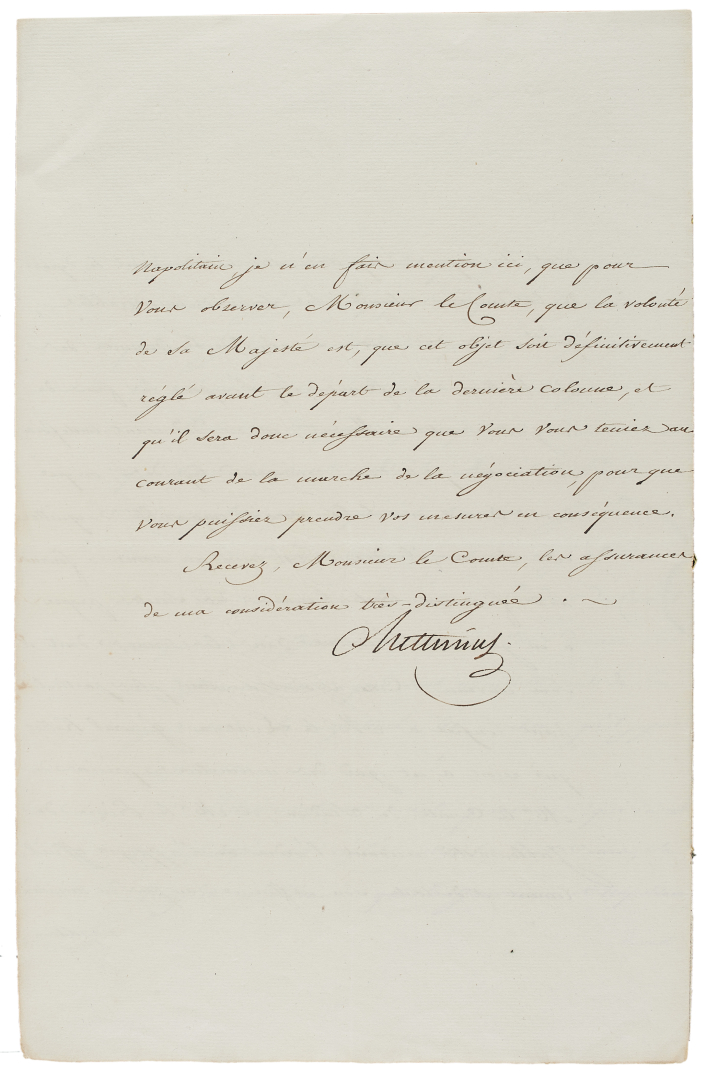 Napolitain, je n'en fais mention ici, que pour
Vous observer, Monsieur le Comte, que la volonté
de Sa Majesté est, que cet objet soit définitivement
réglé avant le départ de la dernière colonne, et
qu'il sera donc nécessaire que Vous Vous teniez au
courant de la marche de la négociation, pour que
Vous puissiez prendre vos mesures en conséquence.
Recevez, Monsieur le Comte, les assurances
de ma considération très-distinguée.
Metternich.